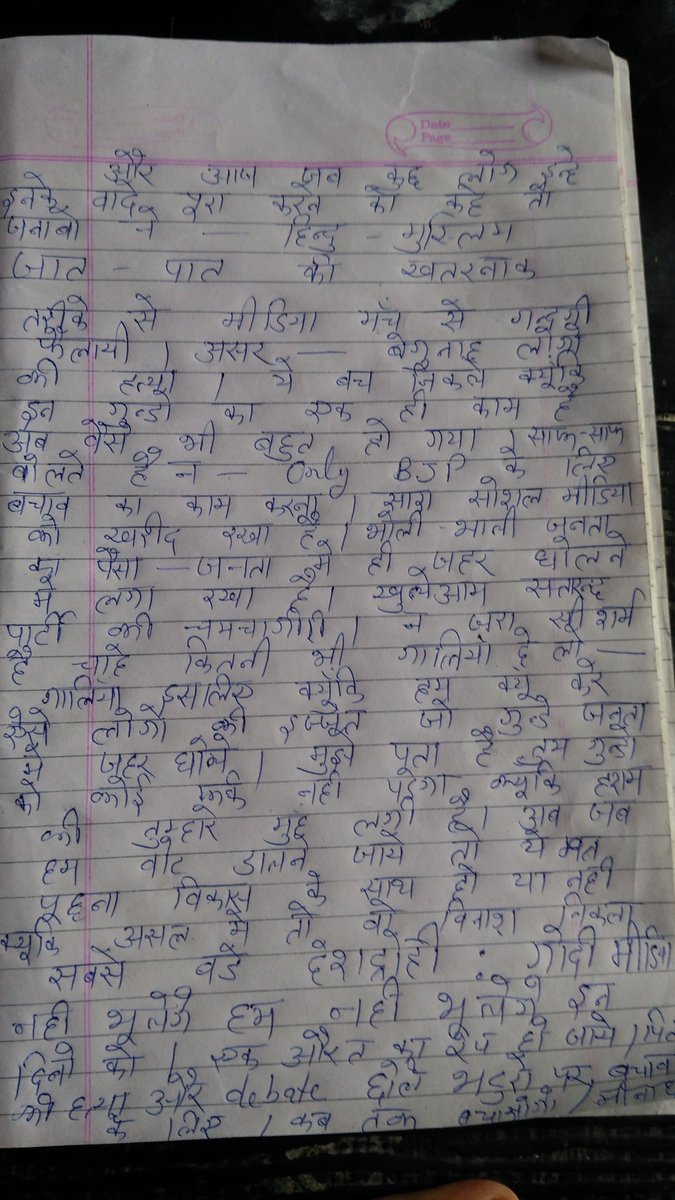 Date
Page
और आज जब कुछ लोग इन्हे
इनके वादे पूरा करने को कहे तो
जनाबो ने — हिन्दु - मुस्लिम
जात - पात की खतरनाक
तरीके से मीडिया मँच से गन्दगी
फैलायी । असर — बेगुनाह लोगो
की हत्या । ये बच निकले क्योंकि
इन गुन्डो का एक ही काम है
अब वैसे भी बहुत हो गया । साफ-साफ
बोलते है न — Only BJP के लिए
बचाव का काम करना । सारा सोशल मीडिया
को खरीद रखा है । भोली-भाली जनता
का पैसा — जनता मे ही जहर घोलने
मे लगा रखा है । खुलेआम
पार्टी की चमचागीरी । न जरा सी शर्म
है चाहे कितनी भी गालियां दे लो —
गालिया इसलिए क्योंकि हम क्यूं करे
ऐसे लोगो की इज्जत जो गुन्डे जनता
मे जहर घोले । मुझे पता है तुम गुन्डो
को कोई फर्क नही पड़ेगा क्यूंकि हराम
की तुम्हारे मुह लगी है । अब जब
हम वोट डालने जाये तो ये मत
पूछना विकास के साथ हो या नही
क्यूंकि असल मे तो वो विनाश निकला
सबसे बडे देशद्रोही : गोदी मीडिया
नही भूलेगे हम नही भूलेगे इन
दिनो को । एक औरत का रेप हो जाये ।
की हत्या और debate छोले भटुरो पर बचाव
के लिए । कब तक बचाओगे ।